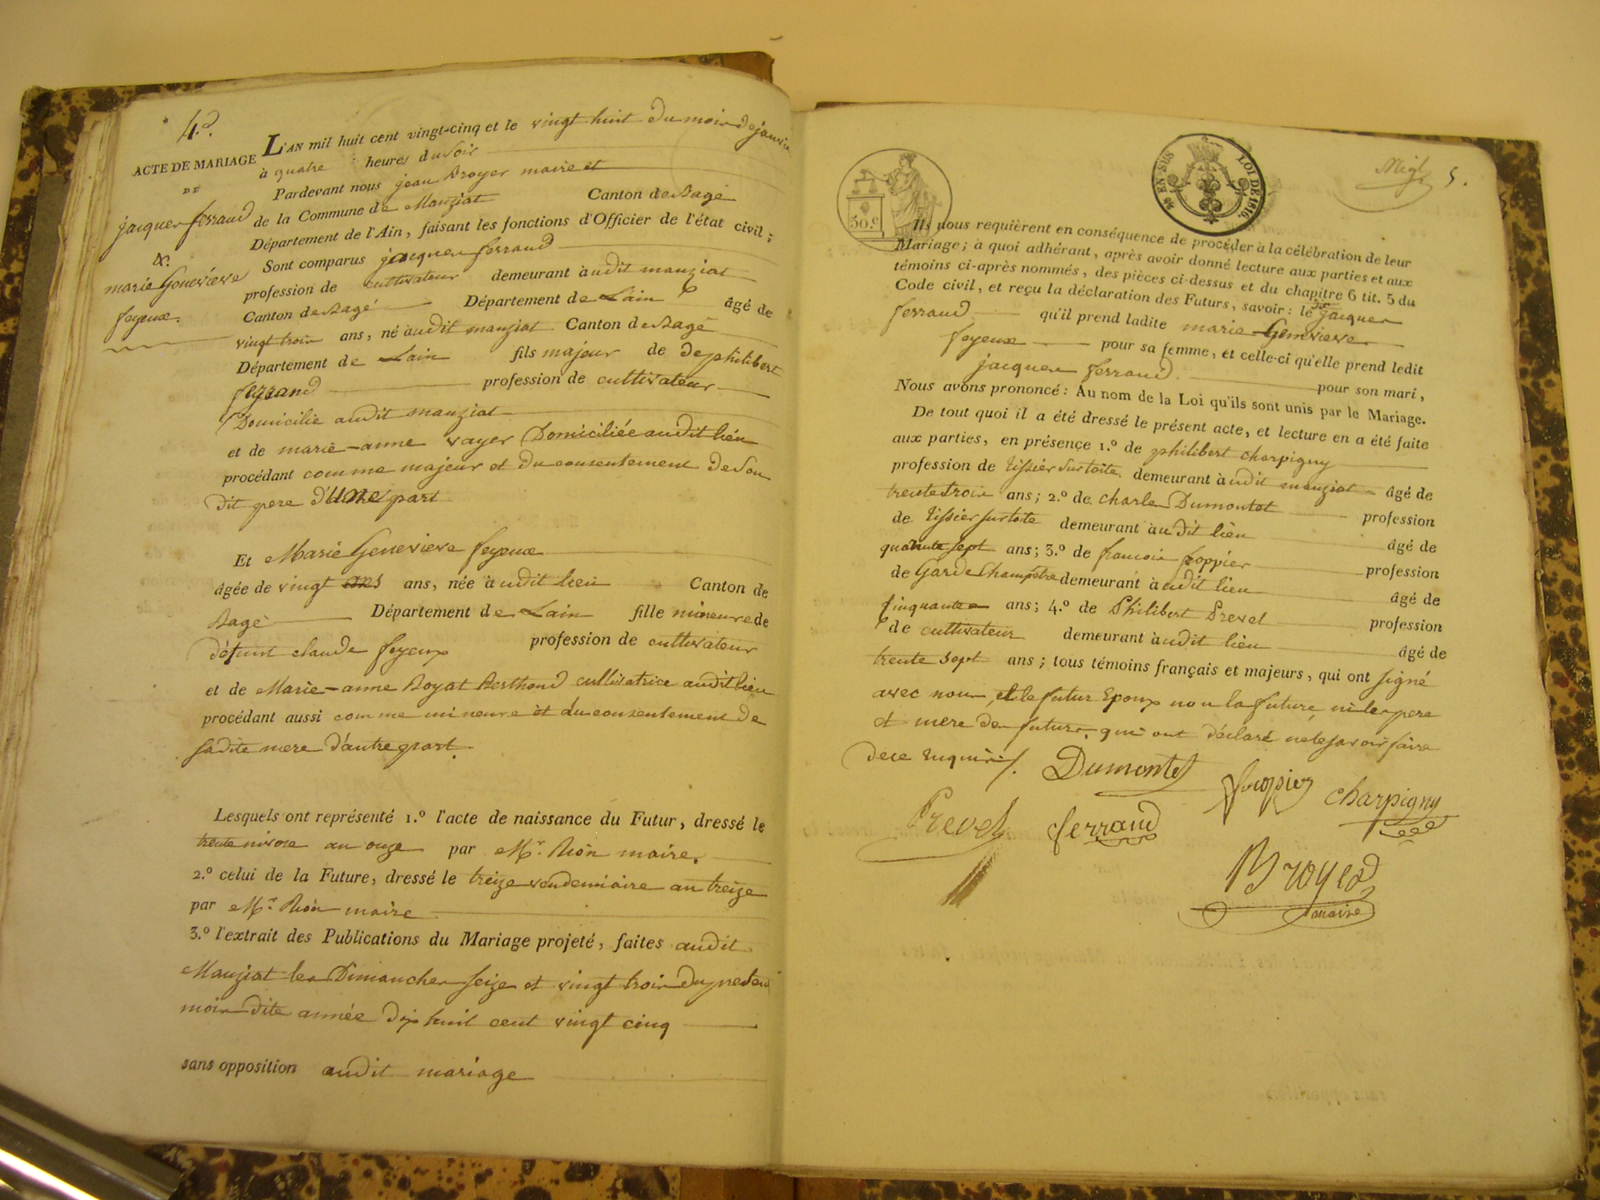 4.e
ACTE DE MARIAGE
DE
jacques ferraud
&.
marie Genevieve
feyeux.
L'AN mil huit cent vingt-cinq et le vingt huit du mois de janvier
à quatre heures du soir
Pardevant nous jean Broyer maire et
de la Commune de Manziat Canton de Bagé
Département de l'Ain, faisant les fonctions d'Officier de l'état civil;
Sont comparus jacques ferraud
profession de cultivateur demeurant à udit manziat
Canton de Bagé Département de Lain âgé de
vingt trois ans, né audit manziat Canton de Bagé
Département de Lain fils majeur de de philibert
ferrand profession de cultivateur
Domicilié audit manziat
et de marie-anne vayer Domiciliée audit lieu
procédant comme majeur et du consentement de son
dit pere d'une part
Et Marie Genevieve feyeux
âgée de vingt ans, née à udit lieu Canton de
Bagé Département de Lain fille mineure de
défunt claude feyeux profession de cultivateur
et de Marie-anne Boyat Berthoud cultivatrice audit lieu
procédant aussi comme mineure et du consentement de
sadite mere d'autre part.
Lesquels ont représenté 1.º l'acte de naissance du Futur, dressé le
trente nivose an onze par Mr. maire.
2.º celui de la Future, dressé le treize vendemiaire an treize
par Mr. maire
3.º l'extrait des Publications du Mariage projeté, faites audit
Manziat les Dimanches seize et vingt trois du present
mois dite année dix huit cent vingt cinq
sans opposition audit mariage
50.c
EN SUS
LOI DE 1816.
5.
Ils nous requièrent en conséquence de procéder à la célébration de leur
Mariage; à quoi adhérant, après avoir donné lecture aux parties et aux
témoins ci-après nommés, des pièces ci-dessus et du chapitre 6 tit. 5 du
Code civil, et reçu la déclaration des Futurs, savoir: le dit jacques
ferraud qu'il prend ladite marie Genevieve
feyeux pour sa femme, et celle-ci qu'elle prend ledit
jacques ferraud pour son mari,
Nous avons prononcé: Au nom de la Loi qu'ils sont unis par le Mariage.
De tout quoi il a été dressé le présent acte, et lecture en a été faite
aux parties, en présence 1.º de philibert charpigny
profession de tissier surtoile demeurant à udit manziat âgé de
trente trois ans; 2.º de charles Dumontet profession
de tissier surtoile demeurant audit lieu âgé de
quarante sept ans; 3.º de francois poppier profession
de Garde Champetre demeurant à udit lieu âgé de
cinquante ans; 4.º de Philibert Prevel profession
de cultivateur demeurant àudit lieu âgé de
trente sept ans; tous témoins français et majeurs, qui ont signé
avec nous, et le futur Epoux non la future, ni les pere
et mere des futurs, qui ont déclaré ne le savoir faire
de ce enquis.
Dumontet
charpigny
Prevel
ferraud
Broyer
maire